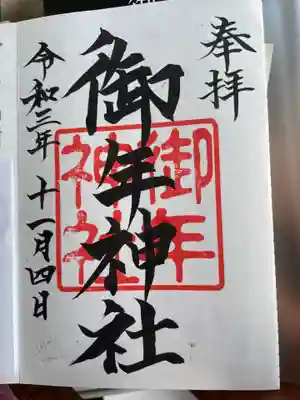 奉拝
御年神社
御年
神社
令和三年十一月四日